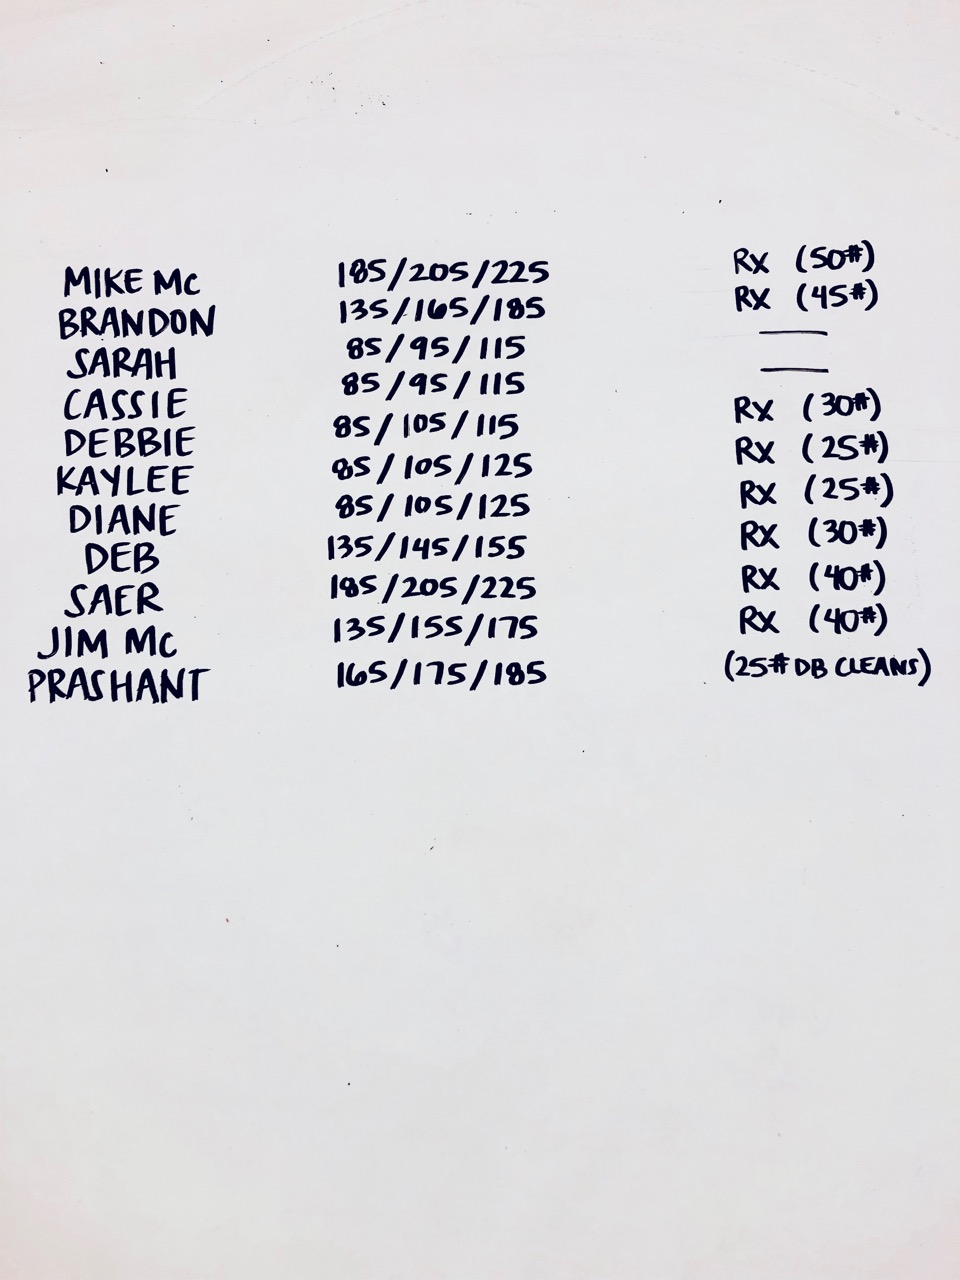 MIKE Mc 185/205/225 Rx (50#)
BRANDON 135/165/185 Rx (45#)
SARAH 85/95/115 —
CASSIE 85/95/115 —
DEBBIE 85/105/115 Rx (30#)
KAYLEE 85/105/125 Rx (25#)
DIANE 85/105/125 Rx (25#)
DEB 135/145/155 Rx (30#)
SAER 185/205/225 Rx (40#)
JIM Mc 135/155/175 Rx (40#)
PRASHANT 165/175/185 (25# DB CLEANS)